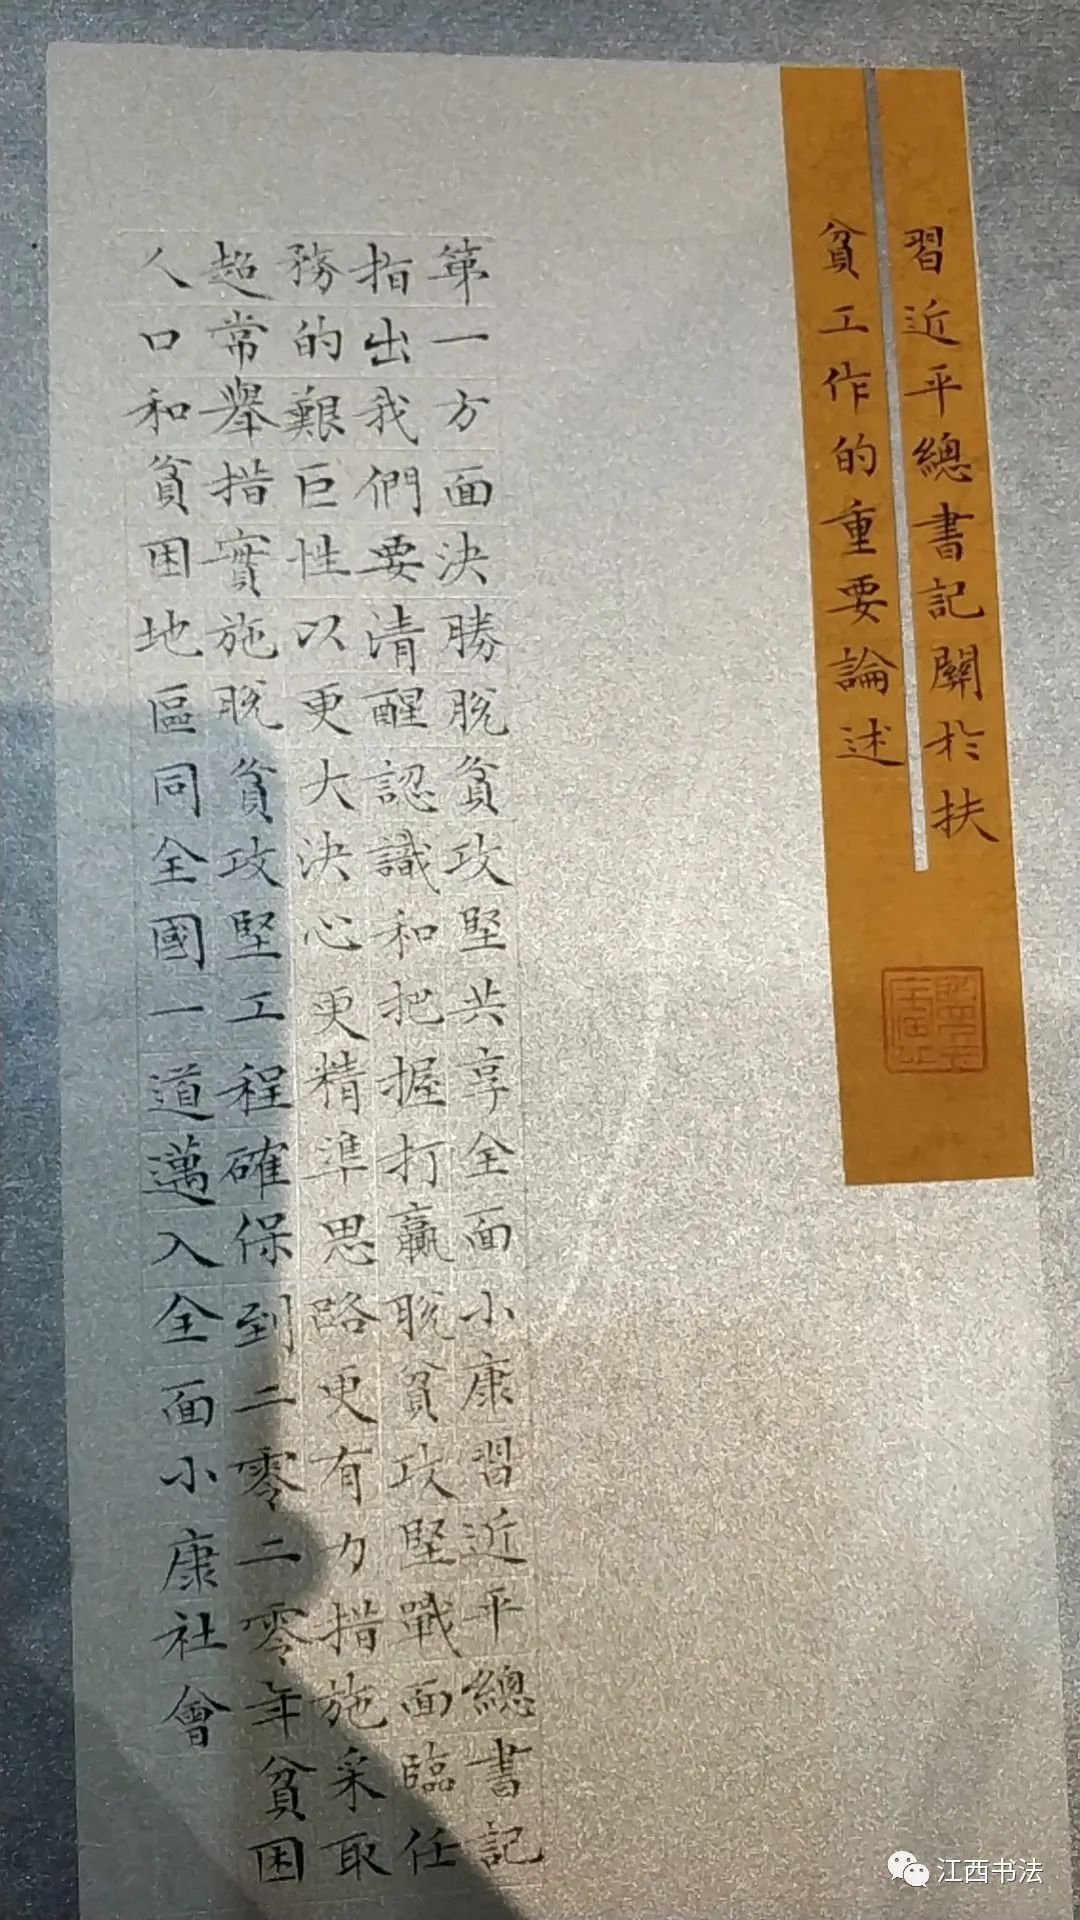 習近平總書記關於扶
貧工作的重要論述
第一方面決勝脫貧攻堅共享全面小康習近平總書記
指出我們要清醒認識和把握打贏脫貧攻堅戰面臨任
務的艱巨性以更大決心更精準思路更有力措施采取
超常舉措實施脫貧攻堅工程確保到二零二零年貧困
人口和貧困地區同全國一道邁入全面小康社會
江西书法